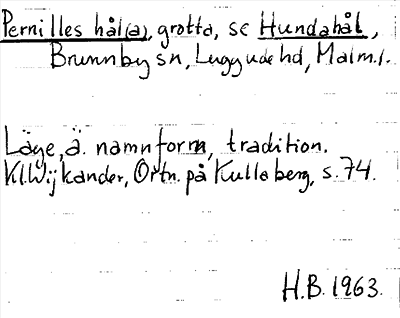 Pernilles hål(a), grotta, se Hundahål,
Brunnby sn, Luggude hd, Malm.l.
Läge, ä. namnform, tradition.
Kl.Wijkander, Ortn. på Kullaberg, s. 74.
H.B. 1963.